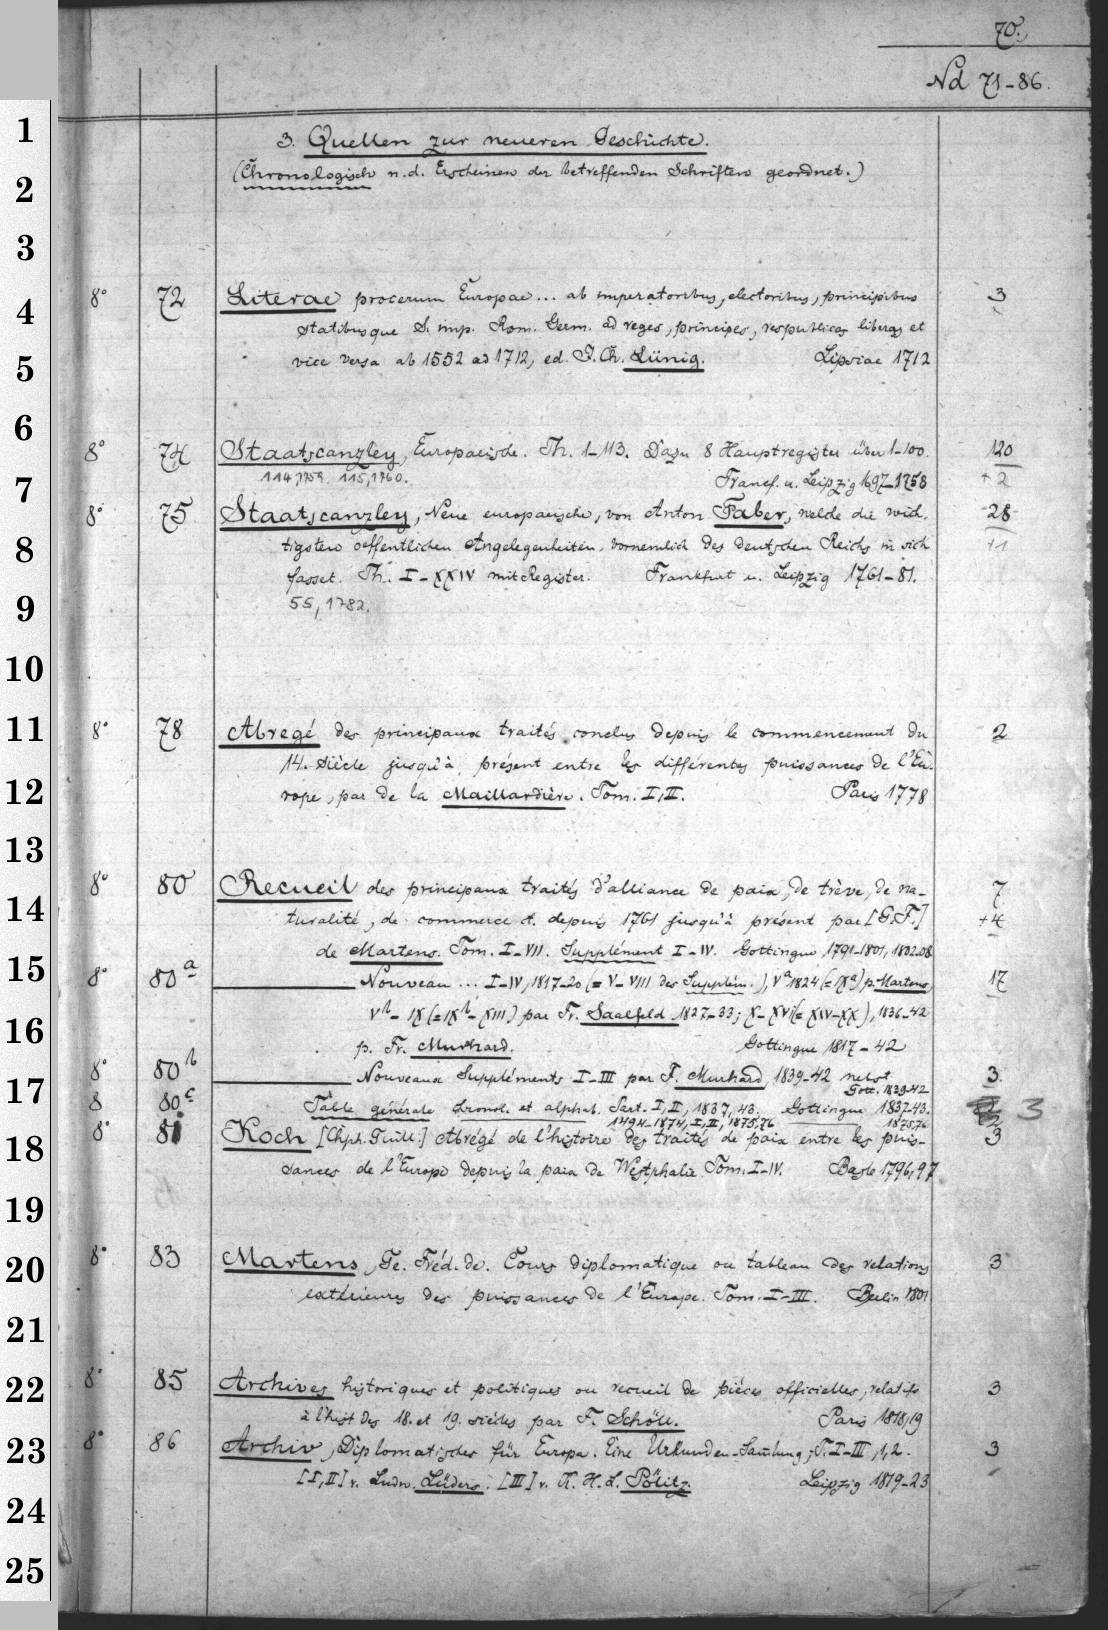 70.
Nd 71-86.
1
3. Quellen zur neueren Geschichte.
2
(Chronologisch n.d. Erscheinen der betreffenden Schriften geordnet.)
3
8° 72 Literae procerum Europae... ab imperatoribus, electoribus, principibus 3
4
statibusque S. imp. Rom. Germ. ad reges, principes, respublicas liberas et
5
vice versa ab 1552 ad 1712, ed. J. Ch. Lünig. Lipsiae 1712
6
8° 74 Staatscanzley, Europaeische. Th. 1-113. Dazu 8 Hauptregister über 1-100. 120
7
114,1759. 115,1760. Francf. u. Leipzig 1697-1758 +2
8° 75 Staatscanzley, Neue europaeische, von Anton Faber, welche die wich- 28
8
tigsten oeffentlichen Angelegenheiten, vornemlich des deutschen Reichs in sich +1
fasset. Th. I-XXIV mit Register. Frankfurt u. Leipzig 1761-81.
9
55, 1782.
10
11
8° 78 Abregé des principaux traités conclus depuis le commencement du 2
14. siècle jusqu'à présent entre les différentes puissances de l'Eu-
12
rope, par de la Maillardière. Tom. I, II. Paris 1778
13
8° 80 Recueil des principaux traités d'alliance de paix, de trève, de na- 7
14
turalité, de commerce et. depuis 1761 jusqu'à présent par [G.F.] +4
de Martens. Tom. I-VII. Supplément I-IV. Gottingue 1791-1801, 1802-08
15
8° 80a Nouveau ... I-IV, 1817-20 (= V-VIII des Supplém.), Va 1824 (= IXa) p. Martens, 17
Vb - IX (= IXb - XIII) par Fr. Saalfeld 1827-33; X-XVI (= XIV-XX), 1836-42
16
p. Fr. Murhard. Gottingue 1817-42
8° 80b Nouveaux Suppléments I-III par F. Murhard, 1839-42 nebst 3.
17
Gott. 1839-42
8 80c Table générale chronol. et alphab. Part. I, II, 1837, 43. Gottingue 1837-43. 3
1494-1874, I, II, 1875,76 1875,76 2
18
8° 81 Koch [Chph. Guill.] Abrégé de l'histoire des traités de paix entre les puis- 3
sances de l'Europe depuis la paix de Westphalie Tom. I-IV. Basle 1796,97
19
20
8° 83 Martens, Ge. Fréd. de. Cours diplomatique ou tableau des relations 3
extérieures des puissances de l'Europe. Tom. I-III. Berlin 1801
21
22
8° 85 Archives historiques et politiques ou recueil de pièces officielles, relatifs 3
à l'hist des 18. et 19. siècles par F. Schöll. Paris 1818,19
23
8° 86 Archiv, Diplomatisches für Europa. Eine Urkunden-Samlung, T. I-III, 1,2. 3
[I, II] v. Ludw. Lüders. [III] v. K. H. L. Pölitz. Leipzig 1819-23
24
25